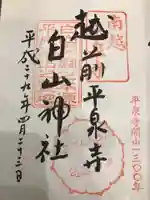 南越
越前平泉寺
白山神社
平成二十九年四月二十三日
平泉寺開山一三〇〇年